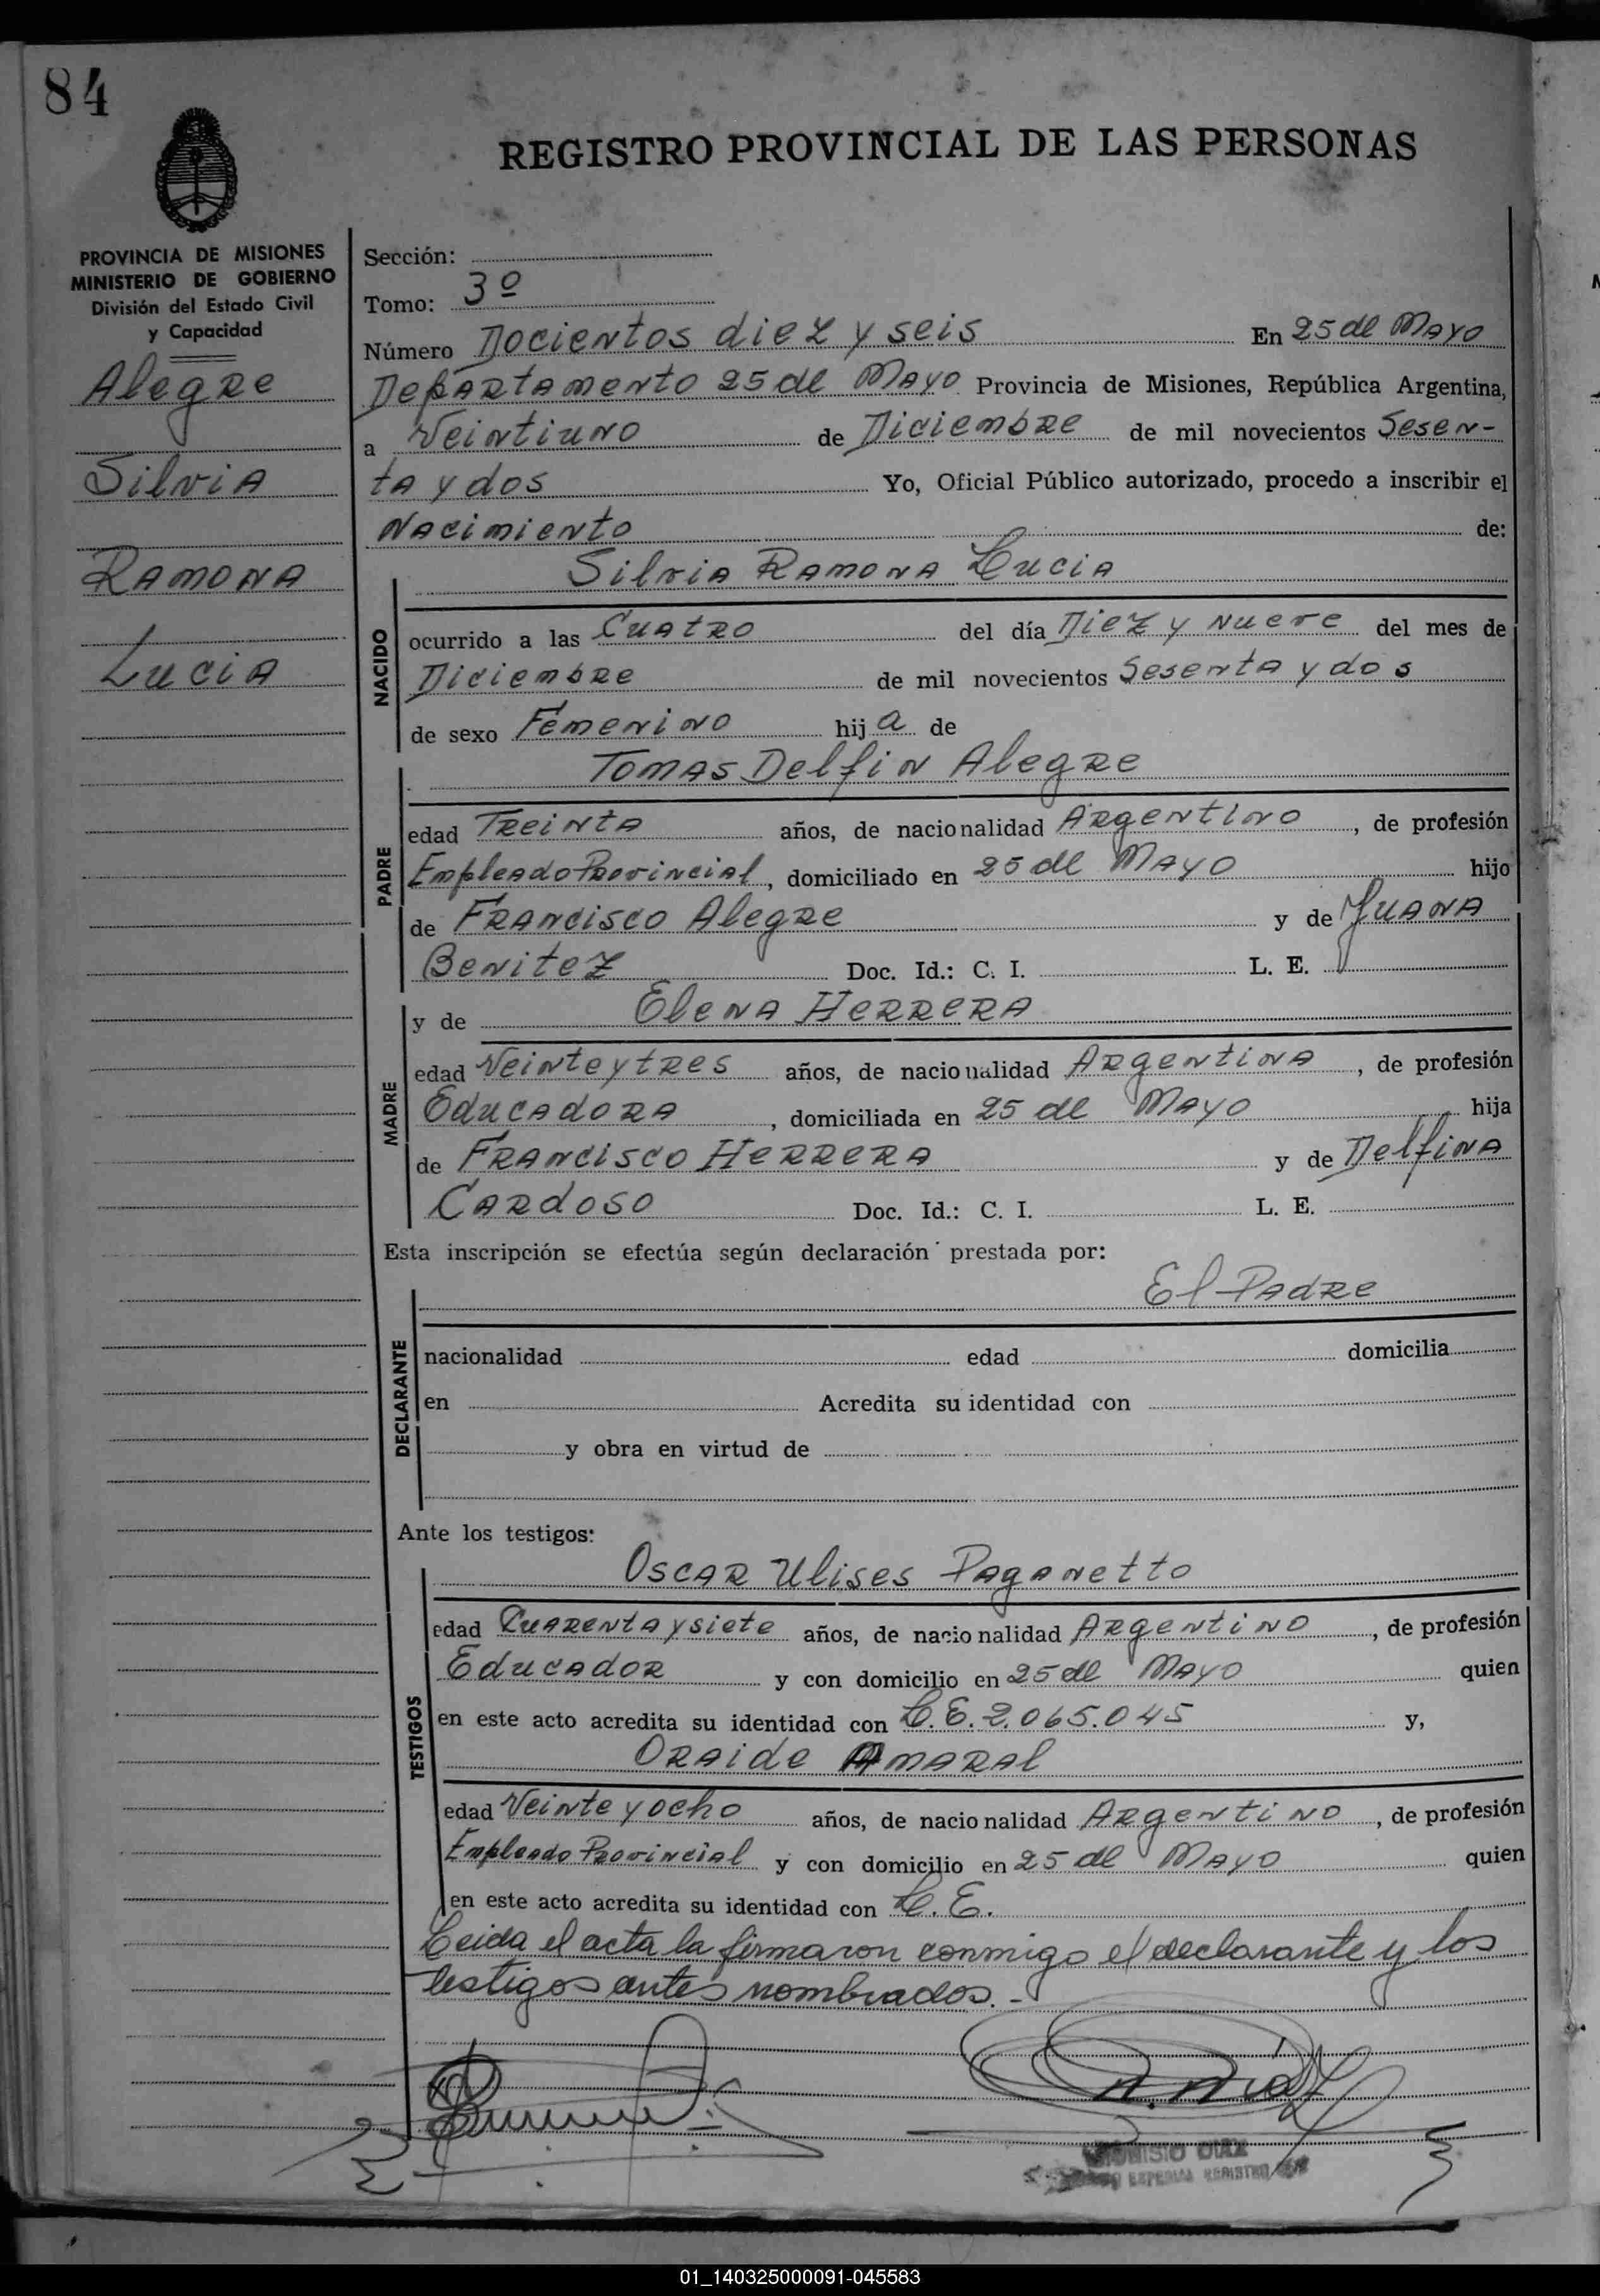 84
REGISTRO PROVINCIAL DE LAS PERSONAS
PROVINCIA DE MISIONES
MINISTERIO DE GOBIERNO
División del Estado Civil
y Capacidad
Alegre
Silvia
Ramona
Lucia
Sección:
Tomo: 3º
Número Docientos diez y seis En 25 de Mayo
Departamento 25 de Mayo Provincia de Misiones, República Argentina,
a Veintiuno de Diciembre de mil novecientos Sesen-
ta y dos Yo, Oficial Público autorizado, procedo a inscribir el
Nacimiento de:
Silvia Ramona Lucia
NACIDO
ocurrido a las Cuatro del día Diez y nueve del mes de
Diciembre de mil novecientos Sesenta y dos
de sexo Femenino hija de
Tomas Delfin Alegre
PADRE
edad Treinta años, de nacionalidad Argentino, de profesión
Empleado Provincial, domiciliado en 25 de Mayo hijo
de Francisco Alegre y de Juana
Benitez Doc. Id.: C. I. L. E.
y de Elena Herrera
MADRE
edad Veinte y tres años, de nacionalidad Argentina, de profesión
Educadora, domiciliada en 25 de Mayo hija
de Francisco Herrera y de Delfina
Cardoso Doc. Id.: C. I. L. E.
Esta inscripción se efectúa según declaración prestada por:
El Padre
DECLARANTE
nacionalidad edad domicilia
en Acredita su identidad con
y obra en virtud de
Ante los testigos:
Oscar Ulises Paganetto
TESTIGOS
edad Cuarenta y siete años, de nacionalidad Argentino, de profesión
Educador y con domicilio en 25 de Mayo quien
en este acto acredita su identidad con L.E. 2.065.045 y,
Oraide Amaral
edad Veinte y ocho años, de nacionalidad Argentino, de profesión
Empleado Provincial y con domicilio en 25 de Mayo quien
en este acto acredita su identidad con L.E.
Leida el acta la firmaron conmigo el declarante y los
testigos antes nombrados.-
D. Díaz
DIONISIO DIAZ
01_140325000091-045583